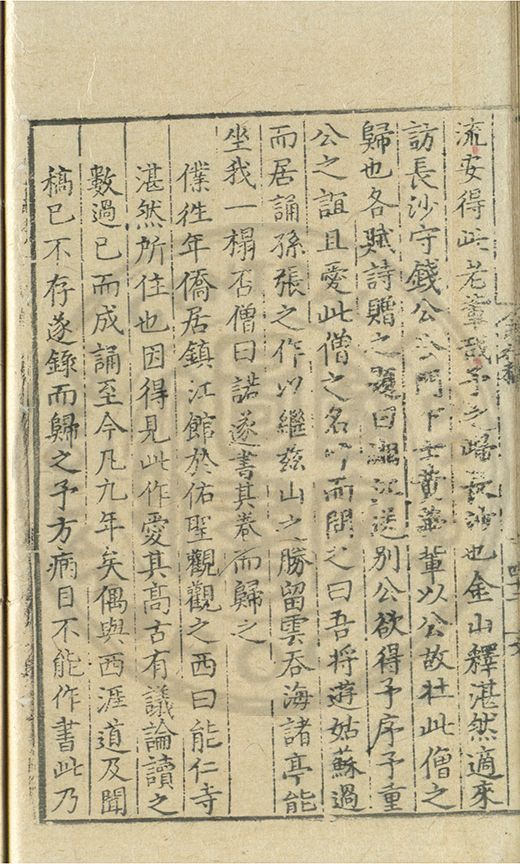 流安得此老輩哉予之歸長沙也金山釋湛然適來
訪長沙守錢公公門下士黃輩以公故壯此僧之
歸也各賦詩贈之題曰湘江送別公欲得予序予重
公之誼且愛此僧之名叩而問之曰吾將遊姑蘇過
而居誦孫張之作以繼茲山之勝留雲吞海諸亭能
坐我一榻否僧曰諾遂書其卷而歸之
僕往年僑居鎮江館於佑聖觀觀之西曰能仁寺
湛然所住也因得見此作愛其高古有議論讀之
數過已而成誦至今凡九年矣偶與西涯道及聞
稿已不存遂錄而歸之予方病目不能作書此乃